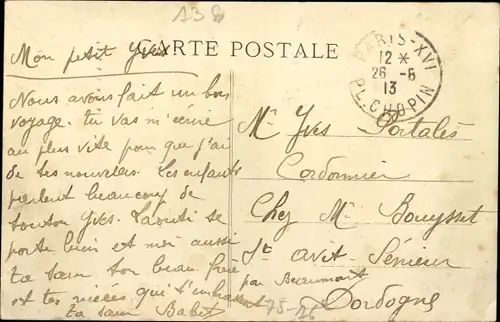 A38
CARTE POSTALE
PARIS-XVI
12 *
26 - 6
13
PL. CHOPIN
Mon petit Yves
Nous avons fait un bon
voyage. tu vas m'écrire
au plus vite pour que j'ai
de tes nouvelles. Les enfants
parlent beaucoup de
tonton Yves. se
porte bien et moi aussi
ta sœur ton beau frère
et tes nièces qui t'embrassent
ta sœur Babet
Mr Yves Portalès
Cordonnier
Chez Mr Bouysset
St avit Sénieur
par Beaumont
Dordogne
75-16